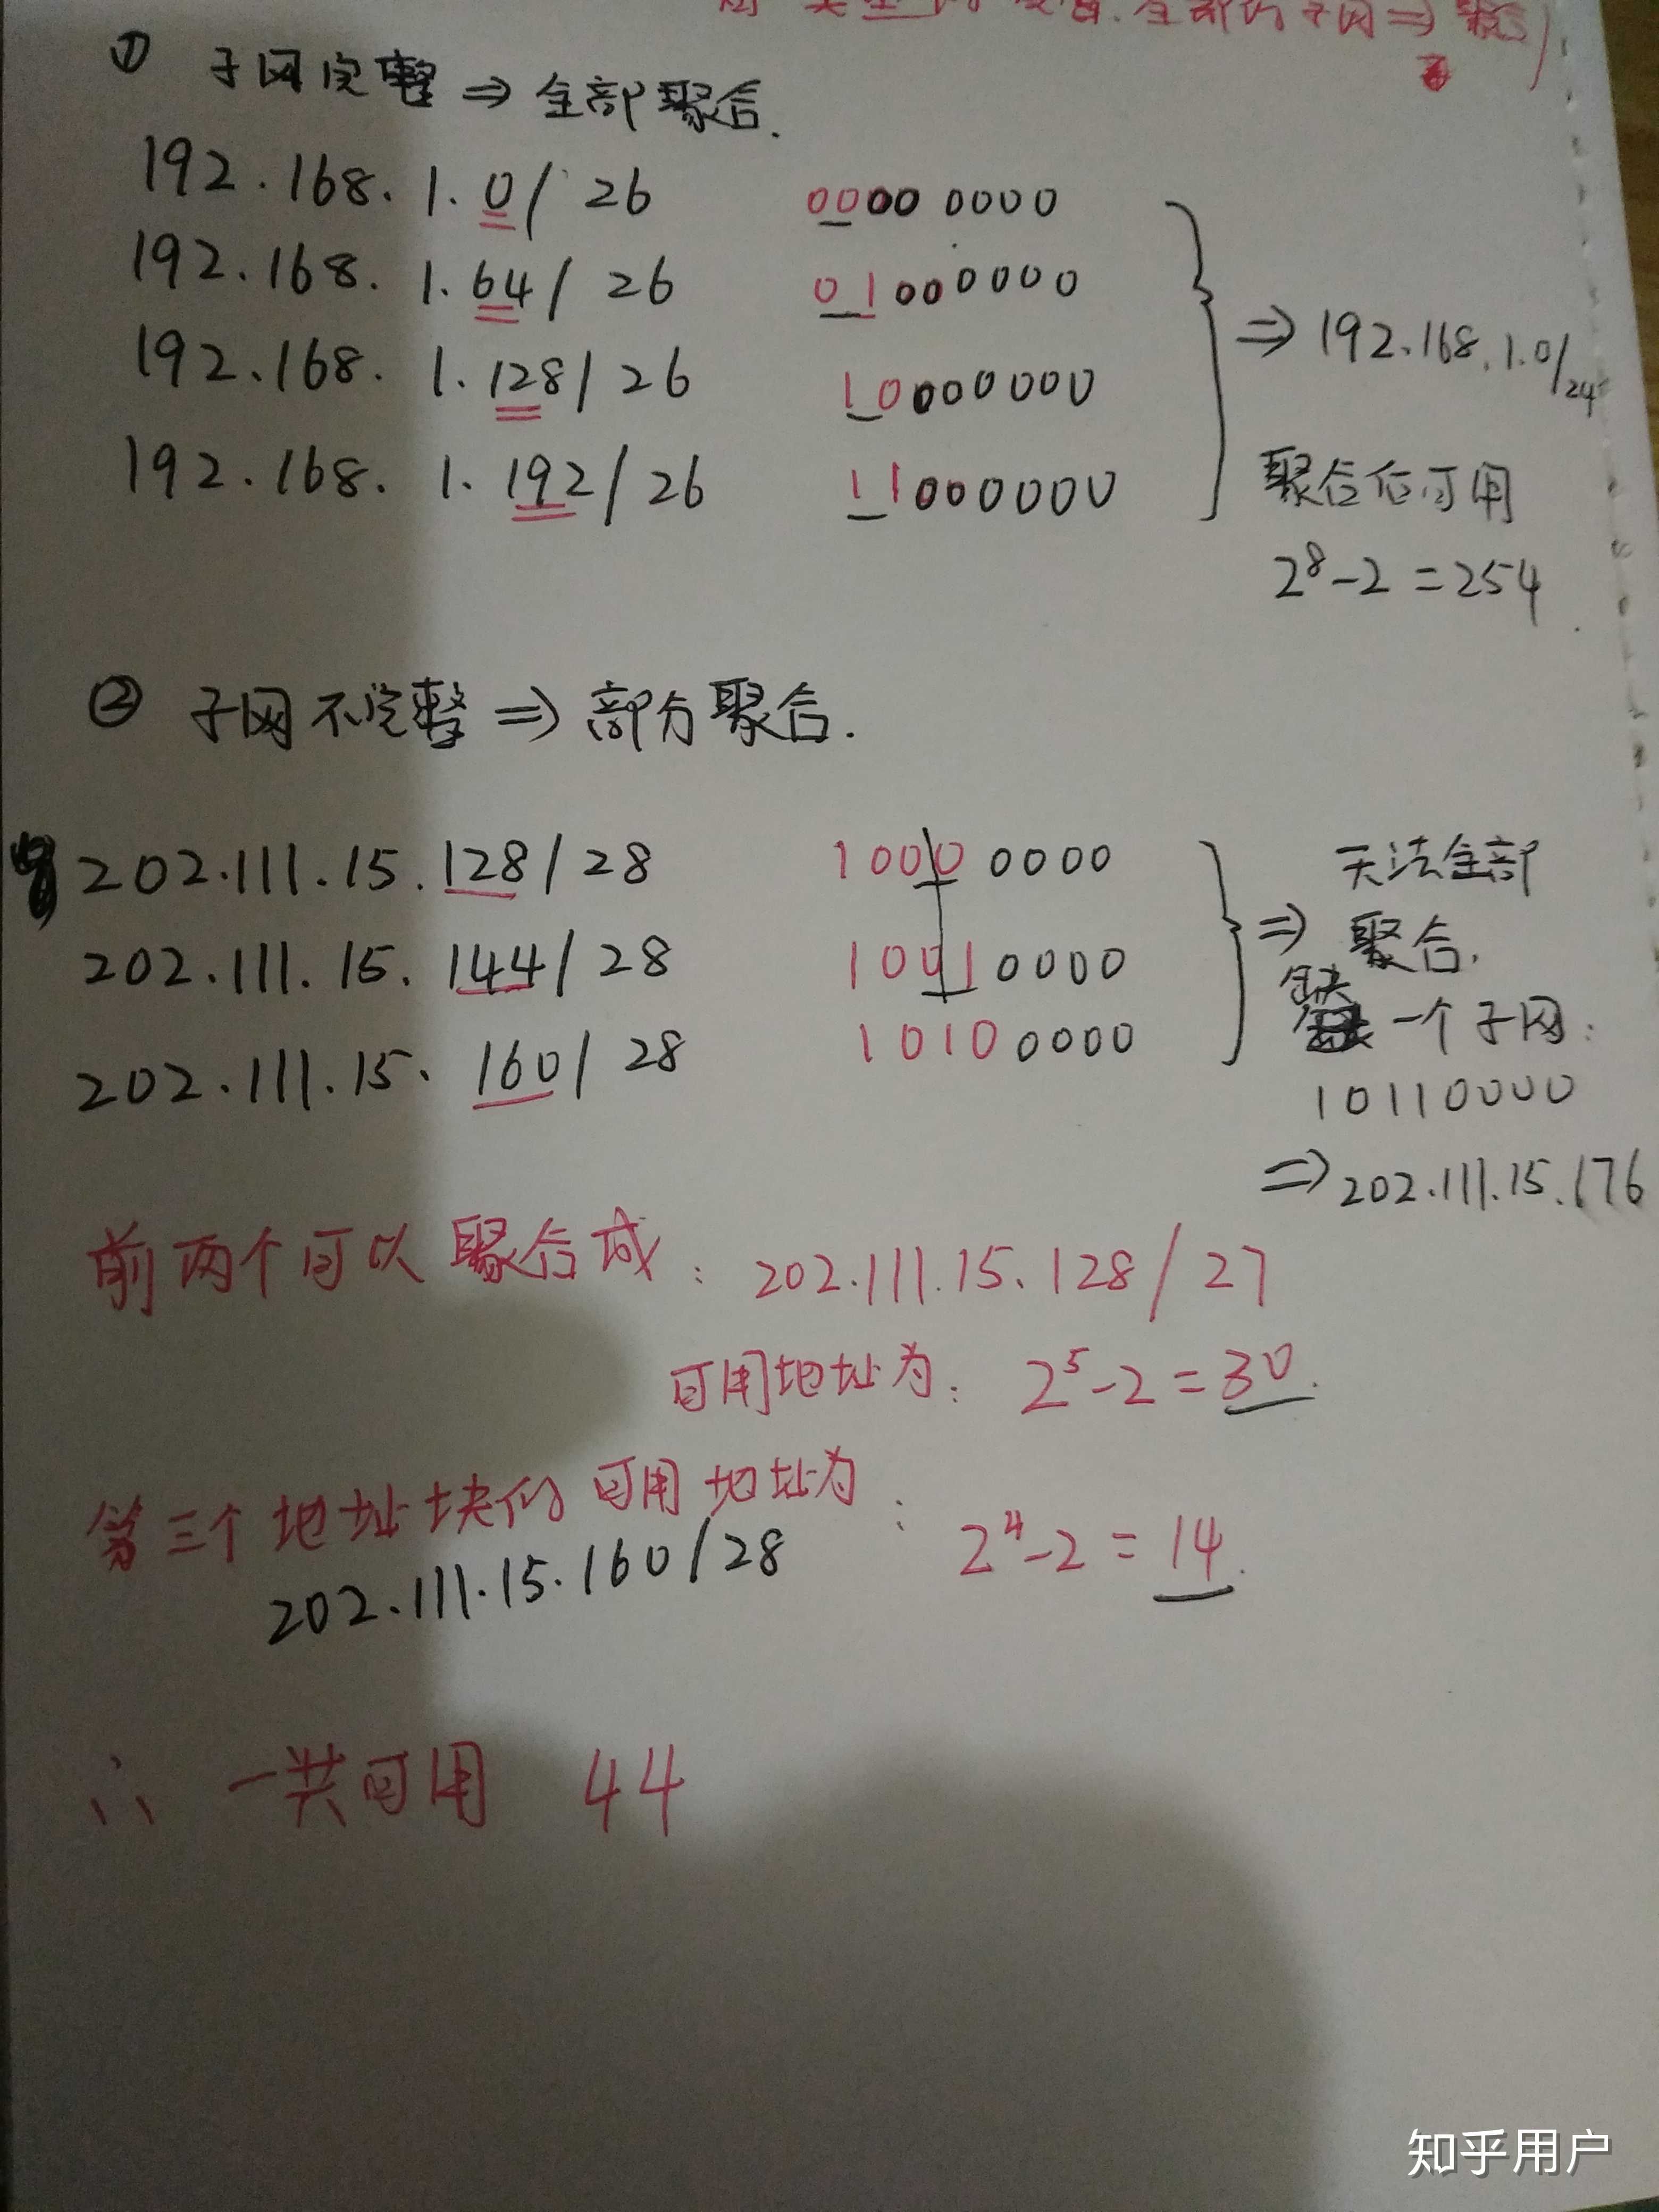 全部的子网⇒聚合)
① 子网完整 ⇒ 全部聚合.
192.168.1.0/26 0000 0000
192.168.1.64/26 01000000
192.168.1.128/26 10000000
192.168.1.192/26 11000000
⇒ 192.168.1.0/24
聚合后可用
2⁸-2=254
② 子网不完整 ⇒ 部分聚合.
202.111.15.128/28 1000 0000
202.111.15.144/28 1001 0000
202.111.15.160/28 1010 0000
⇒ 无法全部
聚合.
缺一个子网:
10110000
⇒202.111.15.176
前两个可以聚合成: 202.111.15.128/27
可用地址为: 2⁵-2=30.
第三个地址块的可用地址为: 2⁴-2=14.
202.111.15.160/28
∴ 一共可用 44
知乎用户